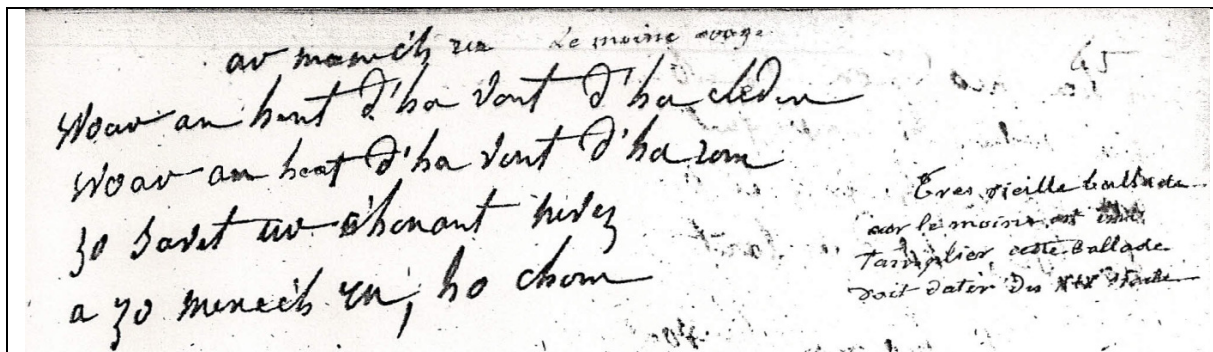 ar manéch ru Le moine rouge 45
Woar an hent d'ha vont d'ha cleden
Woar an hent d'ha vont d'ha rom
zo savet ur c'honant nevez
a zo menéch ru, ho chom
Tres vieille ballade
car le moine est
Tamplier cette ballade
doit dater du